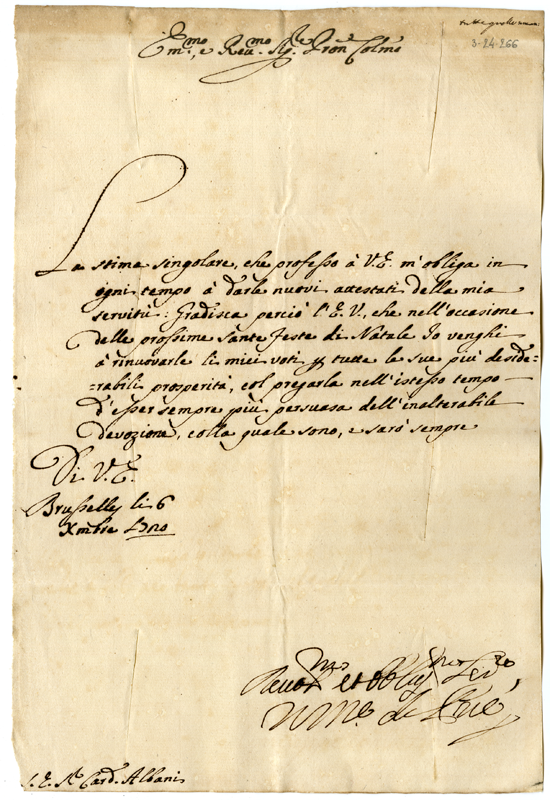 3-24-266
Em.mo, e Reu.mo Sig.re Pron Colmo
La stima singolare, che professo à V.E. m'obliga in
ogni tempo à darle nuovi attestati della mia
servitù: Gradisca perciò l'E.V., che nell'occasione
delle prossime Sante Feste di Natale Io venghi
à rinuovarle li miei voti p tutte le sue più deside=
=rabili prosperità, col pregarla nell'istesso tempo
d'esser sempre più persuasa dell'inalterabile
devozione, colla quale sono, e sarò sempre
Di V.E.
Brusselles li 6
Xmbre 1720
Deuot.mo et Obblig.mo Ser.re
de Prié
S.E. Sr. Card. Albani